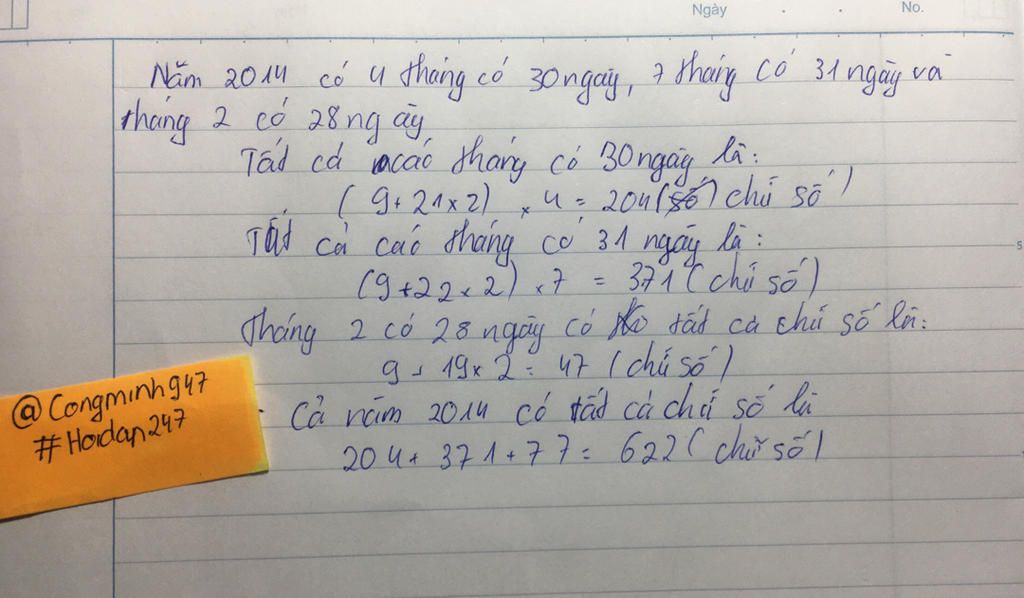 Ngày . . No.
Năm 2014 có 4 tháng có 30 ngày, 7 tháng có 31 ngày và
tháng 2 có 28 ngày
Tất cả các tháng có 30 ngày là:
(9+21x2) x 4 = 204 (số) chữ số)
Tất cả các tháng có 31 ngày là:
(9+22x2) x 7 = 371 (chữ số)
Tháng 2 có 28 ngày có tất cả chữ số là:
9 + 19 x 2 = 47 (chữ số)
Cả năm 2014 có tất cả chữ số là
204 + 371 + 77 = 622 (chữ số)
@Congminh947
#Hoidap247
5